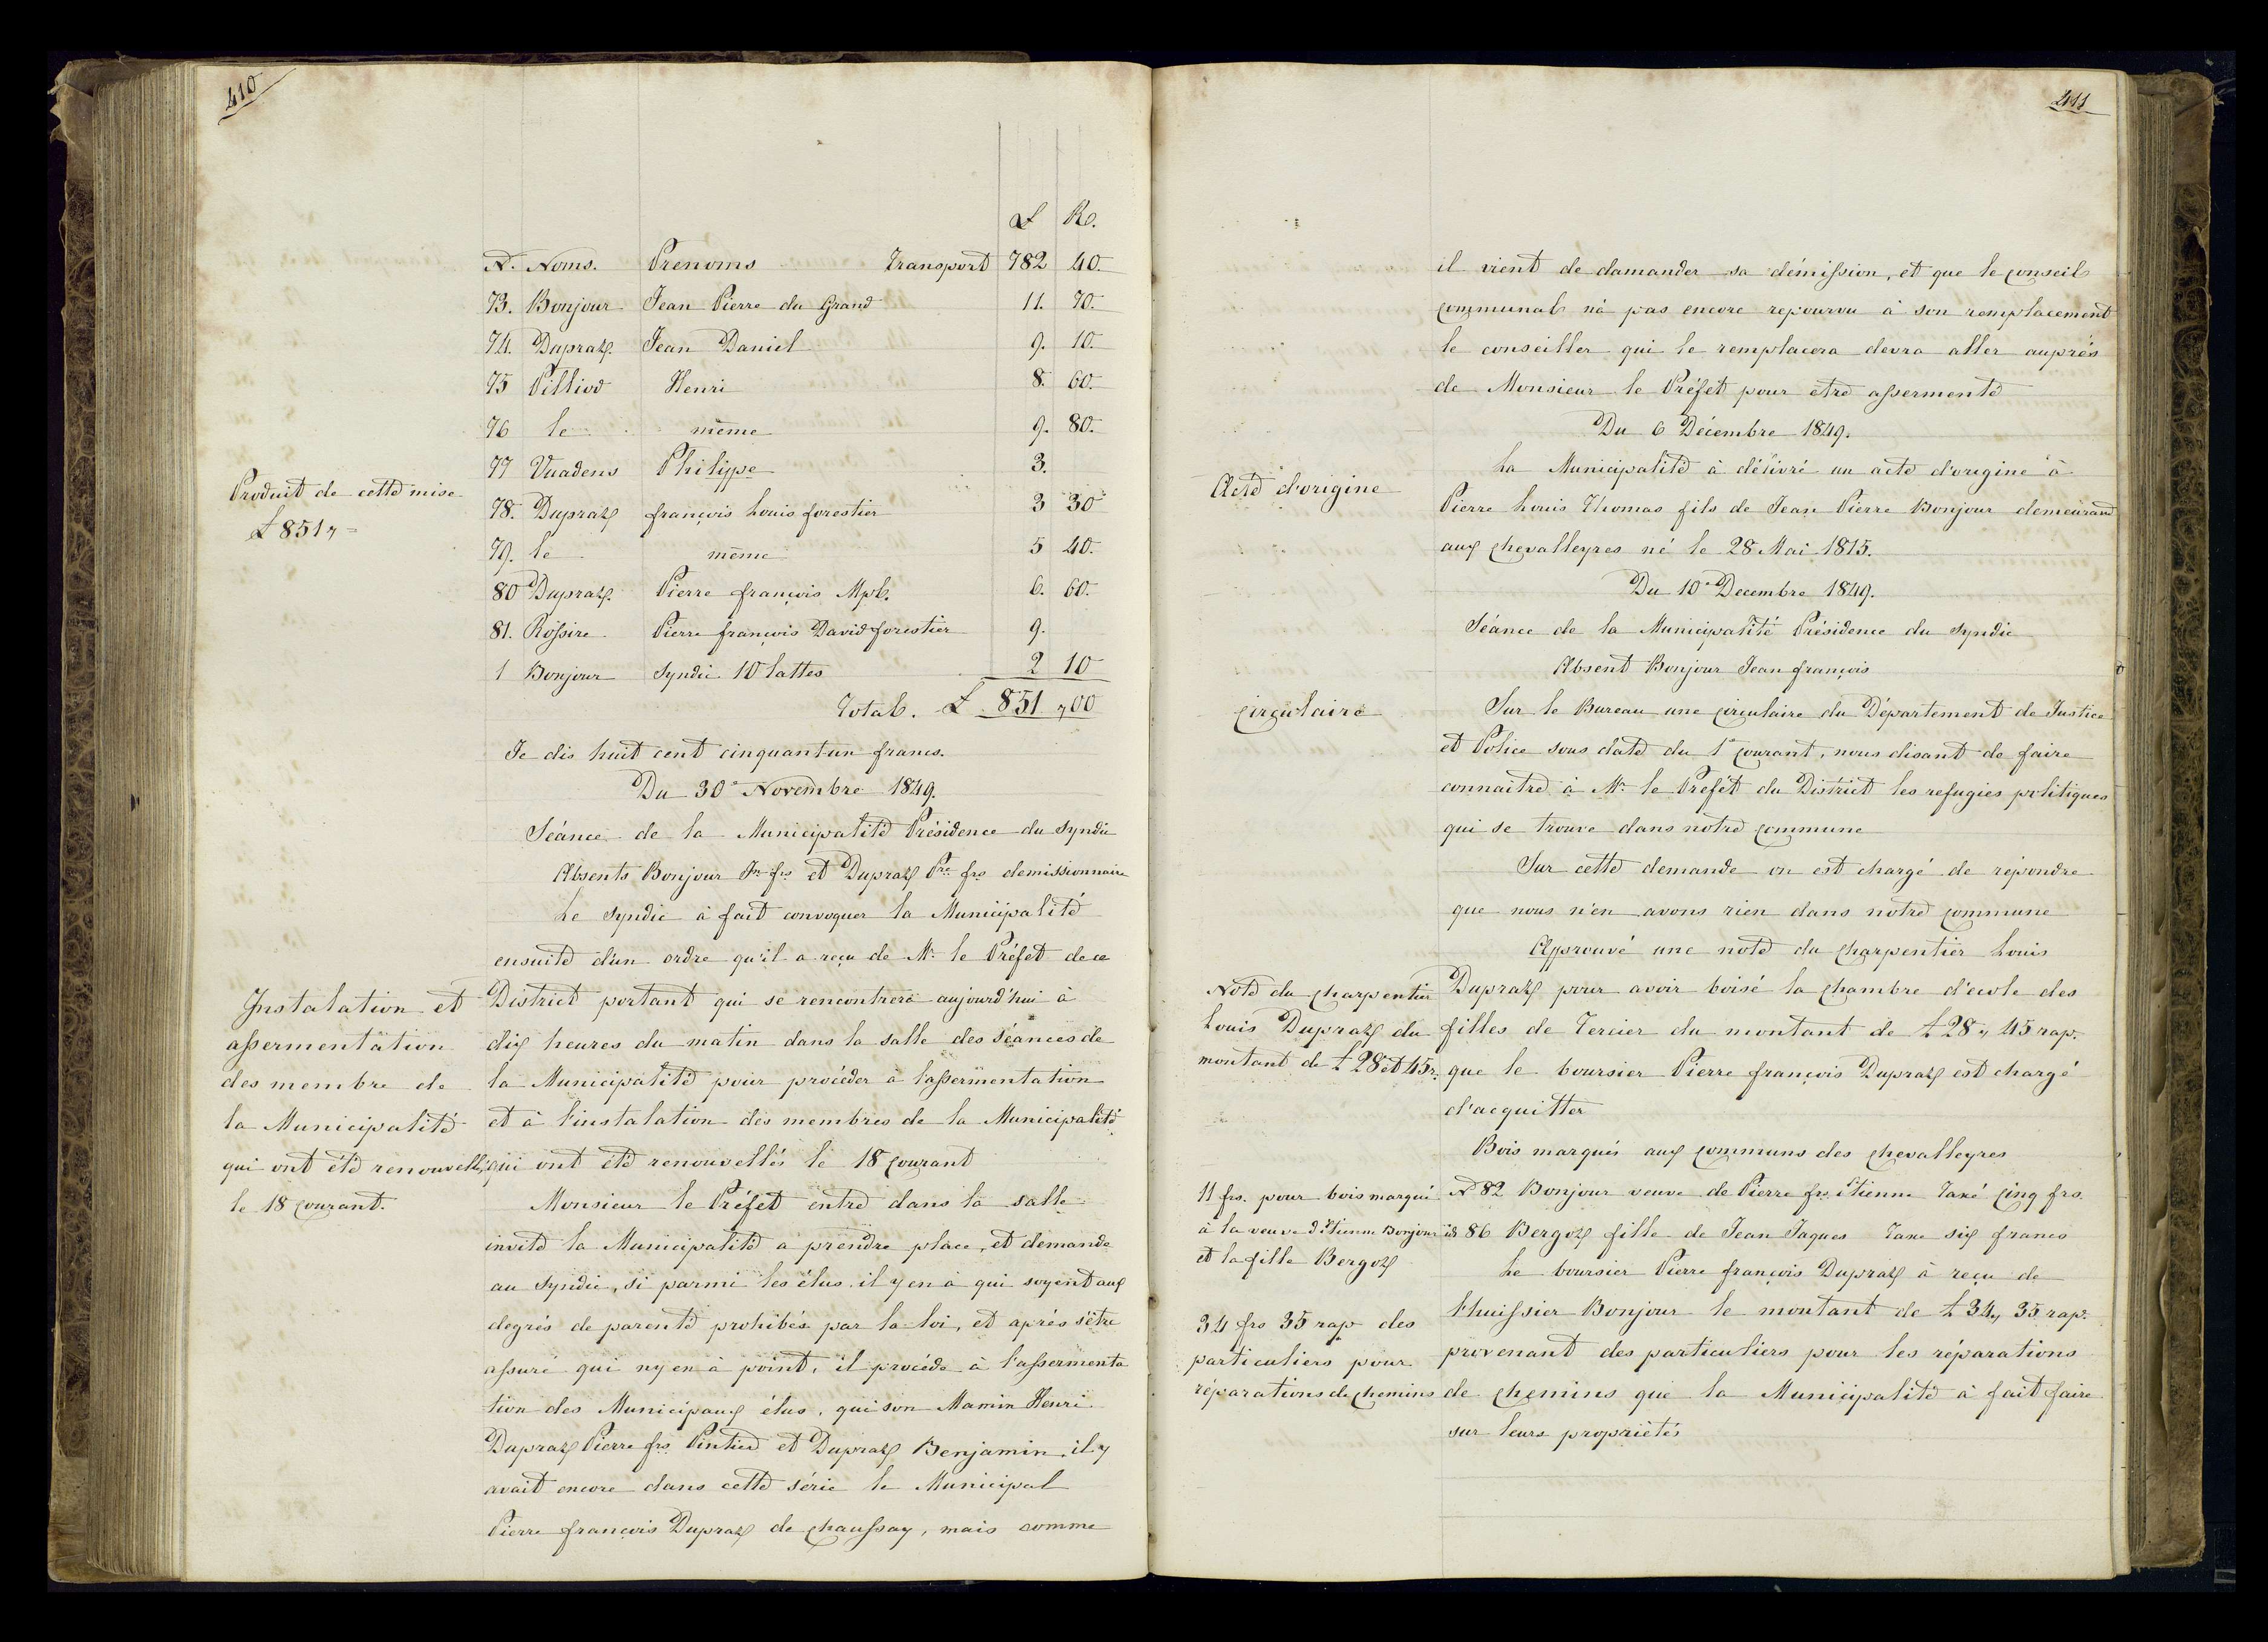 410
£ Rp.
N. Noms. Prenoms Transport 782 40.
73. Bonjour Jean Pierre du Grand 11. 70.
74. Dupraz. Jean Daniel 9. 10.
75 Pilliod Henri 8. 60.
76 le même 9. 80.
77 Vuadens Philippe 3.
78. Dupraz françois Louis forestier 3 30
79. le même 5 40.
80 Dupraz. Pierre françois Mpl. 6. 60.
81. Rossire Pierre françois David forestier 9.
1 Bonjour Syndic 10 lattes 2 10
Total. £ 851 ,, 00
Produit de cette mise
£ 851 ,, =
Je dis huit cent cinquantun francs.
Du 30e Novembre 1849.
Séance de la Municipalité Présidence du Syndic
Absents Bonjour Jn frs et Dupraz Pre frs demissionnaire
Le Syndic à fait convoquer la Municipalité
ensuite d'un ordre qu'il a reçu de Mr. le Préfet de ce
Instalation et
assermentation
des membre de
la Municipalité
qui ont été renouvellés
le 18 courant.
District portant qui se rencontrera aujourd'hui à
dix heures du matin dans la salle des séances de
la Municipalité pour procéder à l'assermentation
et à l'instalation des membres de la Municipalité
qui ont été renouvellés le 18 courant
Monsieur le Préfet entre dans la salle
invite la Municipalité a prendre place, et demande
au Syndic, si parmi les élus il y en à qui soyent aux
degrés de parenté prohibés par la loi, et aprés s'être
assuré qui ny en à point, il procéde à l'assermenta
tion des Municipaux élus, qui son Mamin Henri
Dupraz Pierre frs Pintier et Dupraz Benjamin, il y
avait encore dans cette série le Municipal
Pierre francois Dupraz de chaussay, mais comme
411
il vient de damander sa démission, et que le conseil
communal n'à pas encore repourvu à son remplacement
le conseiller qui le remplacera devra aller auprés
de Monsieur le Préfet pour etre assermenté
Du 6 Décembre 1849.
Acte d'origine
La Municipalité à délivré un acte d'origine à
Pierre Louis Thomas fils de Jean Pierre Bonjour demeurand
aux chevalleyres né le 28 Mai 1815.
Du 10e Decembre 1849.
Séance de la Municipalité Présidence du Syndic
Absent Bonjour Jean françois
circulaire
Sur le Bureau une circulaire du Département de Justice
et Police sous date du 1er courant, nous disant de faire
connaitre à Mr. le Préfét du District les refugies politiques
qui se trouve dans notre commune
Sur cette demande on est chargé de répondre
que nous n'en avons rien dans notre commune
Approuvé une note du charpentier Louis
Note du charpentier
Louis Dupraz du
montant de £ 28 et 45 r.
Dupraz pour avoir boisé la chambre d'ecole des
filles de Tercier du montant de £ 28 ,, 45 rap.
que le boursier Pierre françois Dupraz est chargé
d'acquitter
Bois marqués aux communs des chevalleyres
11 frs. pour bois marqué
à la veuve d'Etienne Bonjour
et la fille Bergoz
N 82 Bonjour veuve de Pierre frs Etienne Taxé cinq frs.
id 86 Bergoz fille de Jean Jaques Taxe six francs
Le boursier Pierre françois Dupraz à reçu de
34 frs 35 rap des
particuliers pour
réparations de chemins
l'huissier Bonjour le montant de £ 34 ,, 35 rap.
provenant des particuliers pour les réparations
de chemins que la Municipalité à fait faire
sur leurs propriétés